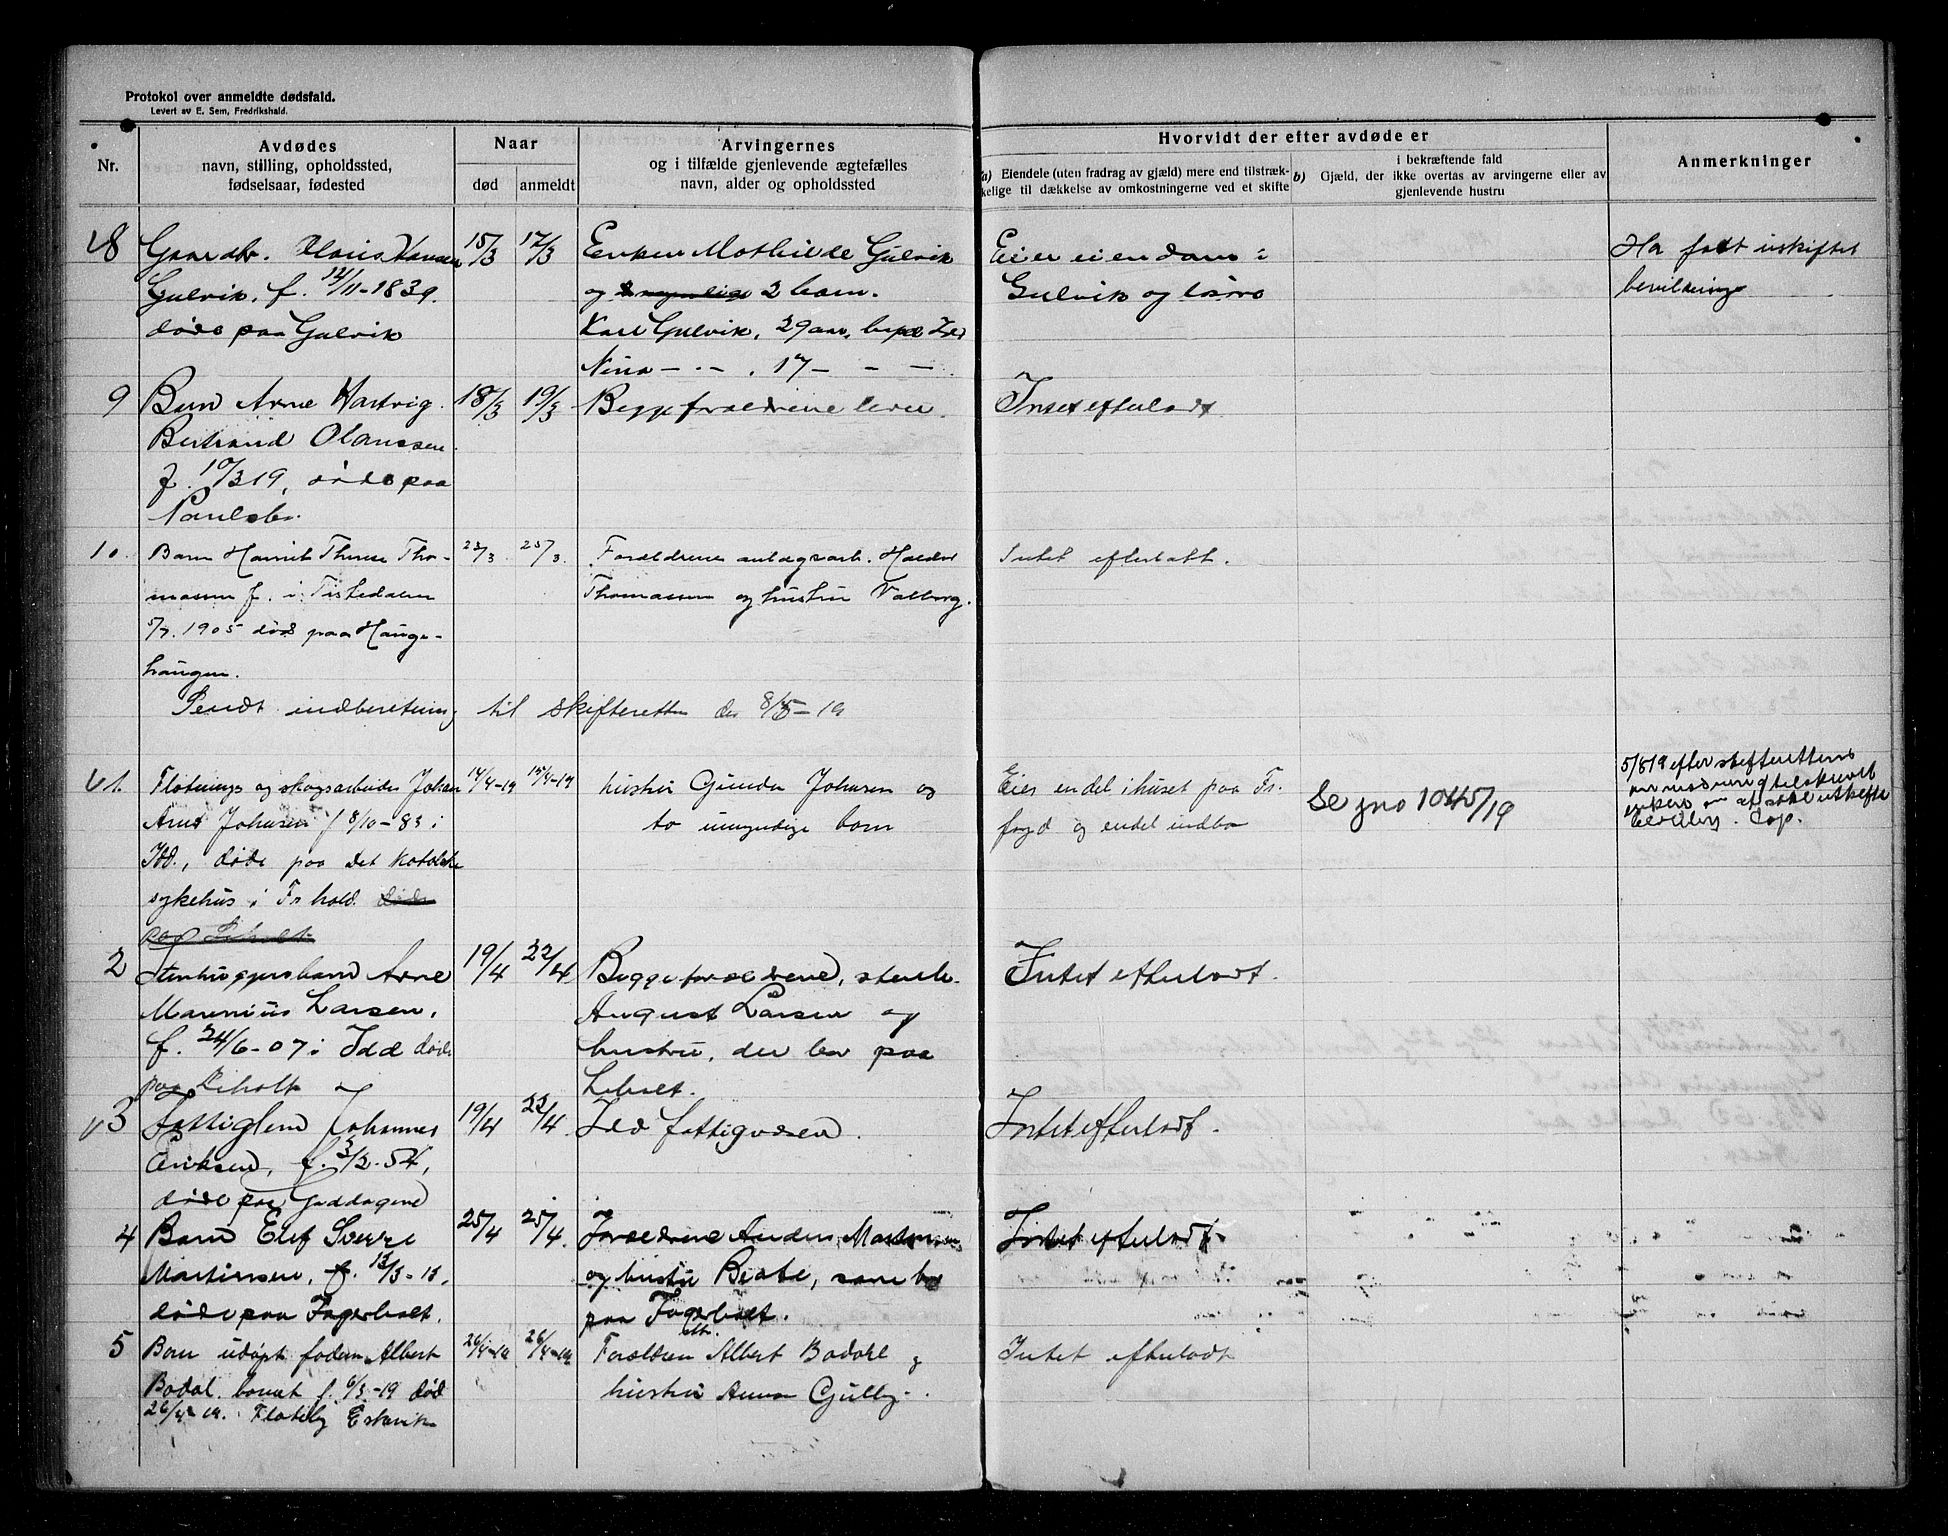 Protokol over anmeldte dødsfald.
Levert av E. Sem, Fredrikshald.
Nr.
Avdødes
navn, stilling, opholdssted,
fødselsaar, fødested
Naar
død
anmeldt
Arvingernes
og i tilfælde gjenlevende ægtefælles
navn, alder og opholdssted
Hvorvidt der efter avdøde er
a) Eiendele (uten fradrag av gjæld) mere end tilstræk-
kelige til dækkelse av omkostningerne ved et skifte
b)
i bekræftende fald
Gjæld, der ikke overtas av arvingerne eller av
gjenlevende hustru
Anmerkninger
8
Gaardbr. Hansen
Gulvik, f. 12/11-1839.
døde paa Gulvik
15/3
17/3
Enken Mathilde Gulvik
og 2 barn.
Karl Gulvik, 29 aar,
Nina - - - . 17 - - -
Eier eiendom i
Gulvik og løsøre
Ha faat uskiftet
bevilling
9
Barn Arne Hartvig
Bertrand Olaussen
f. 10/3 19, døde paa
18/3
19/3
Begge forældrene lever.
Intet efterladt
10.
Barn Harriet Therese Tho-
massen f. i Tistedalen
5/7. 1905 død paa Hauge-
haugen.
23/3
25/3.
Forældrene anlægsarb. Haldor
Thomassen og hustru Valborg.
Intet efterlatt.
Sendt indberetning til skifteretten den 8/5-19
1.
Fløtnings og skogsarbeider Johan
Arnt Johansen f 8/10-83 i
Idd., døde paa det katolske
sykehus i Fr.hald døde
paa Liholt
14/4-19
15/4-19
hustru Gunda Johansen og
to umyndige barn
Eier endel i huset paa Fr.
og endel indbo
Se jno 1045/19
5/8 19 efter skifterettens
anmodning tilskrevet
enken om at søke uskifte
bevilling.
2
Stenhuggerbarn Arne
Marenius Larsen,
f. 24/6-07 i Idd døde
paa Liholt
19/4
22/4
Begge forældrene, stenh.
August Larsen og
hustru, der bor paa
Liholt.
Intet efterladt.
3
Fattiglem Johannes
Eriksen, f. 3/2-54,
døde paa Gaddagene
19/4
22/4
Idd fattigvæsen.
Intet efterladt.
4
Barn Elef Sverre
Martinsen, f. 13/3-13,
døde paa Fagerholt.
25/4
25/4.
Forældrene Anders Martinsen
og hustru Beate, som bor
paa Fagerholt.
Intet efterladt.
5
Barn udøpt faderen Albert
Bodal. barnet f. 6/3-19 død
26/4 19. Eskevik
26/4-19
26/4-19
Forældren Albert Bodahl og
hustru Anna Gulby.
Intet efterladt